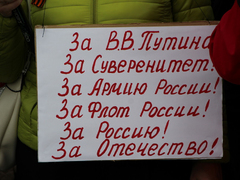 За В.В. Путина
За Суверенитет!
За Армию России!
За Флот России!
За Россию!
За Отечество!